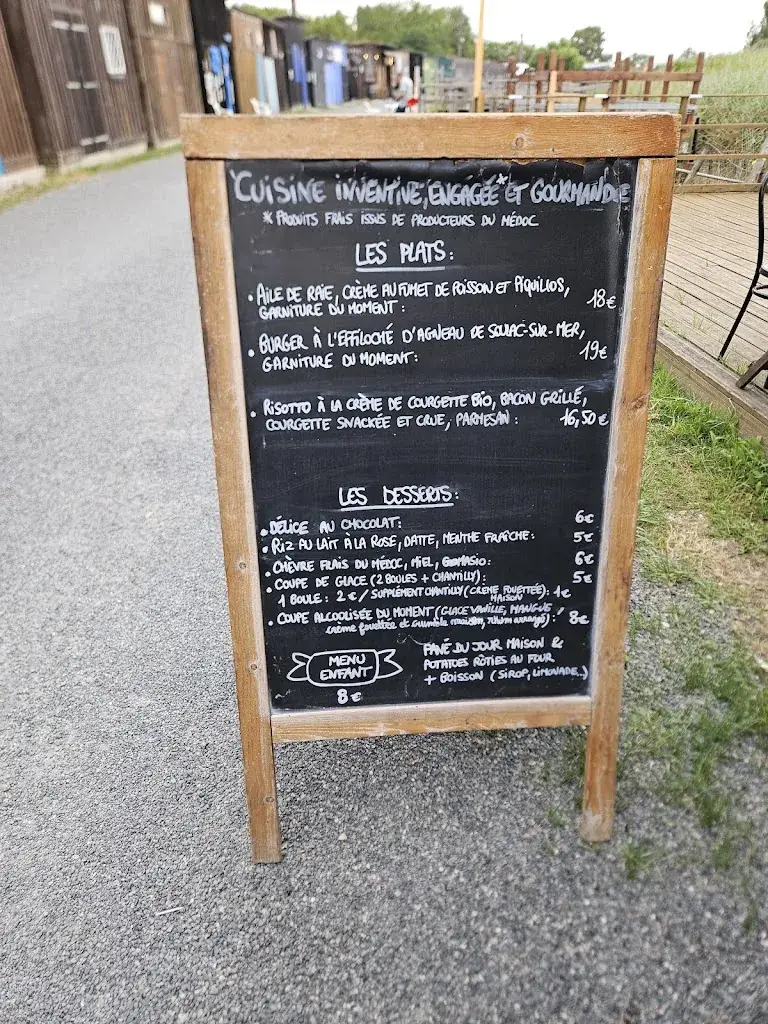 CUISINE INVENTIVE, ENGAGÉE* ET GOURMANDE
* PRODUITS FRAIS ISSUS DE PRODUCTEURS DU MÉDOC
LES PLATS :
• AILE DE RAIE, CRÈME AU FUMET DE POISSON ET PIQUILLOS,
GARNITURE DU MOMENT : 18€
• BURGER À L'EFFILOCHÉ D'AGNEAU DE SOULAC-SUR-MER,
GARNITURE DU MOMENT : 19€
• RISOTTO À LA CRÈME DE COURGETTE BIO, BACON GRILLÉ,
COURGETTE SNACKÉE ET CRUE, PARMESAN : 16,50€
LES DESSERTS :
• DÉLICE AU CHOCOLAT : 6€
• RIZ AU LAIT À LA ROSE, DATTE, MENTHE FRAÎCHE : 5€
• CHÈVRE FRAIS DU MÉDOC, MIEL, GOMASIO : 6€
• COUPE DE GLACE (2 BOULES + CHANTILLY) : 5€
1 BOULE : 2€ / SUPPLÉMENT CHANTILLY (CRÈME FOUETTÉE) : 1€
MAISON
• COUPE ALCOOLISÉE DU MOMENT (GLACE VANILLE, MANGUE 8€
crème fouettée et crumble maison, rhum arrangé) :
MENU
ENFANT
8€
PANÉ DU JOUR MAISON &
POTATOES RÔTIES AU FOUR
+ BOISSON (SIROP, LIMONADE..)